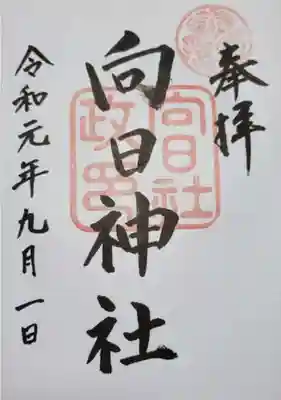 奉拝
向日神社
向日社
政印
令和元年九月一日